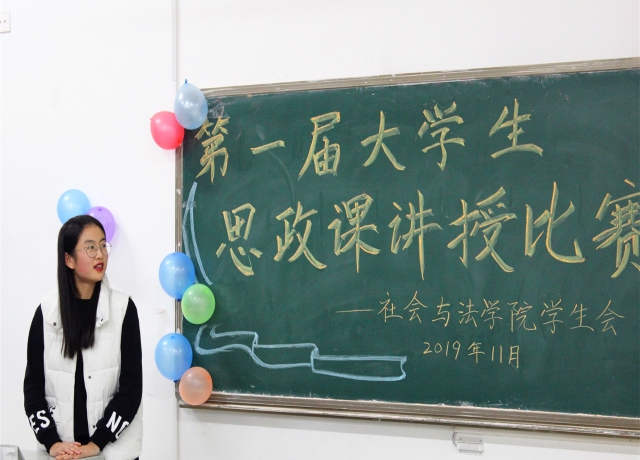 第一届大学生
思政课讲授比赛
——社会与法学院学生会
2019年11月
ES
NO